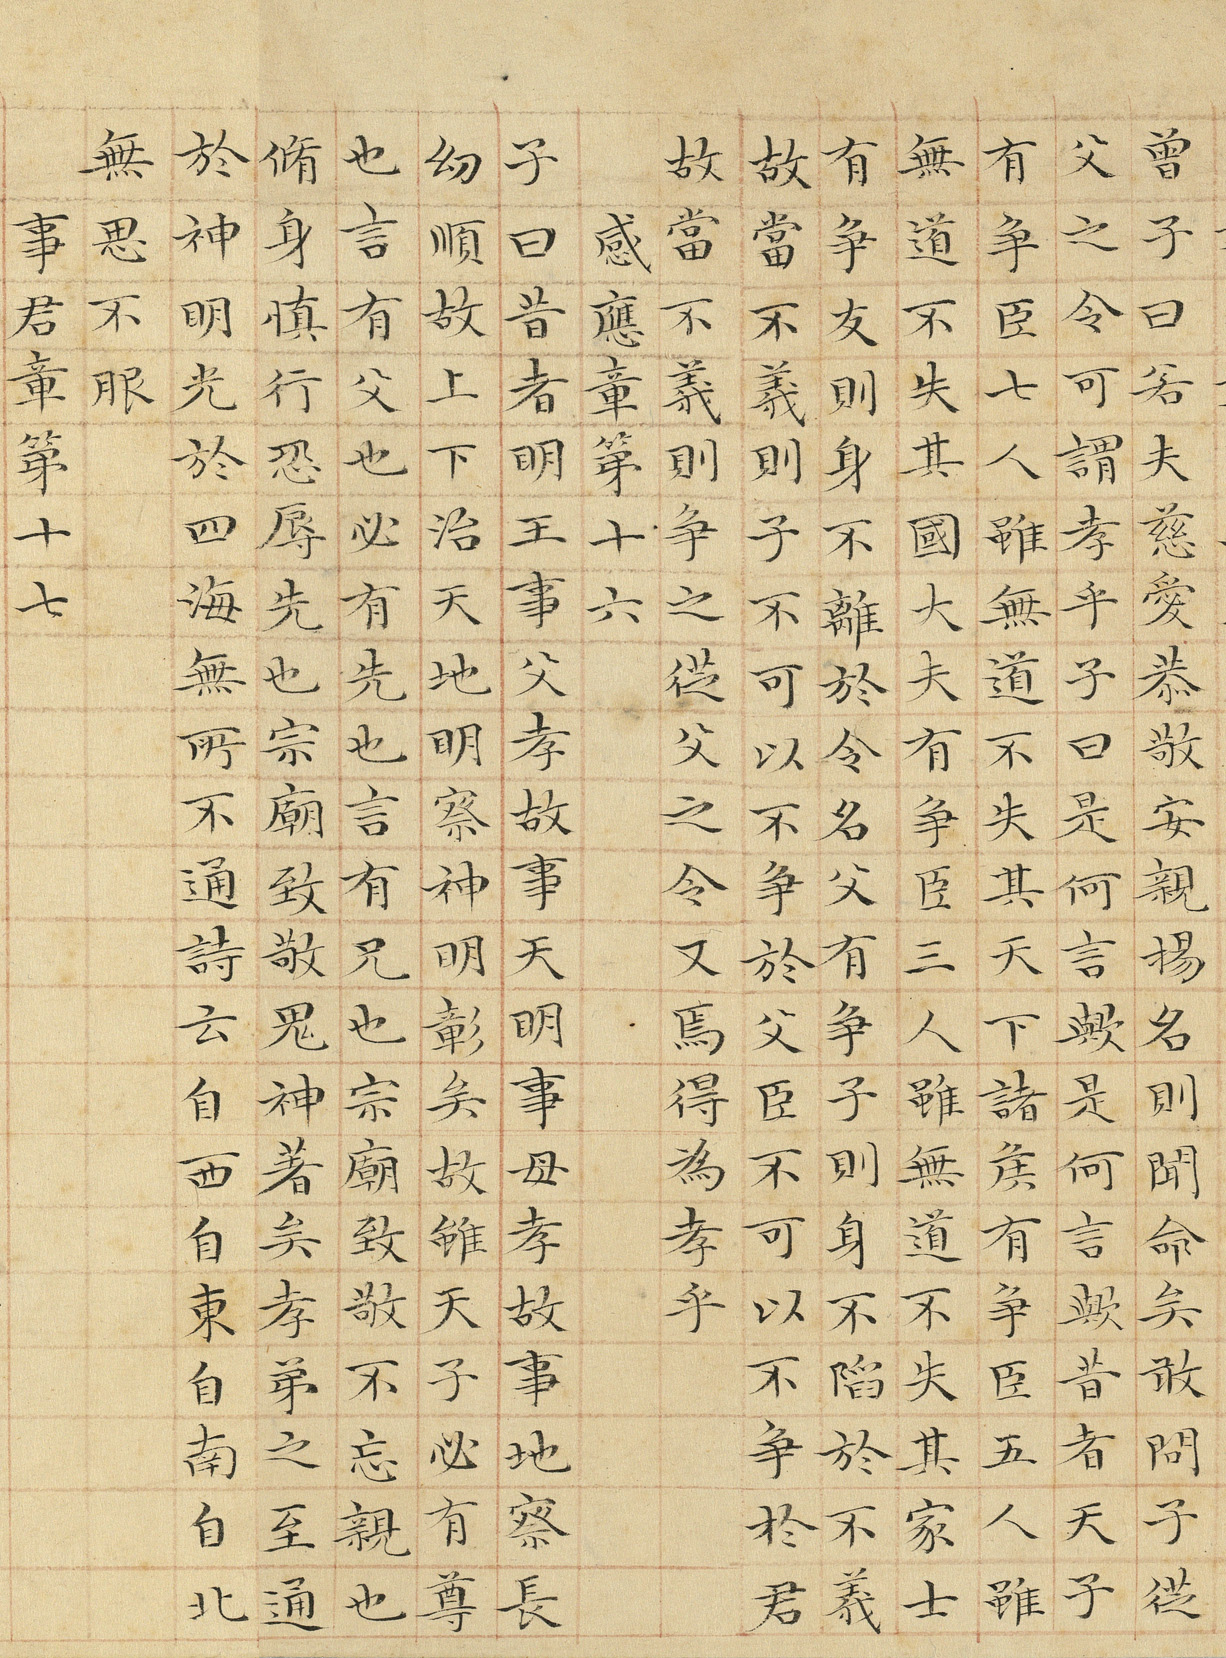 曾子曰若夫慈愛恭敬安親揚名則聞命矣敢問子從
父之令可謂孝乎子曰是何言歟是何言歟昔者天子
有爭臣七人雖無道不失其天下諸侯有爭臣五人雖
無道不失其國大夫有爭臣三人雖無道不失其家士
有爭友則身不離於令名父有爭子則身不陷於不義
故當不義則子不可以不爭於父臣不可以不爭於君
故當不義則爭之從父之令又焉得為孝乎
感應章第十六
子曰昔者明王事父孝故事天明事母孝故事地察長
幼順故上下治天地明察神明彰矣故雖天子必有尊
也言有父也必有先也言有兄也宗廟致敬不忘親也
脩身慎行恐辱先也宗廟致敬鬼神著矣孝弟之至通
於神明光於四海無所不通詩云自西自東自南自北
無思不服
事君章第十七